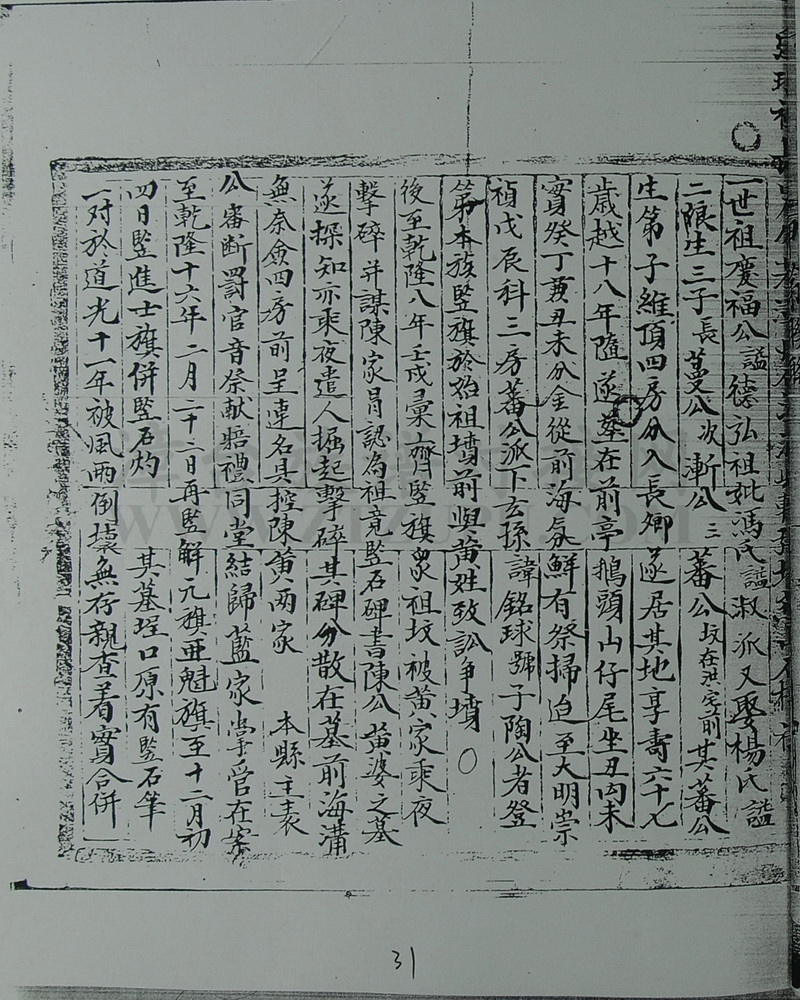 一世祖慶福公謚德弘祖妣馮氏謚淑派又娶楊氏謚
二限生三子長蔓公次漸公三蕃公坟在洪宅前其蕃公
生第子維頂四房分入長卿遂居其地享壽六十七
歲越十八年隨遂塟在前亭鵝頭山仔尾坐丑向未
實癸丁兼丑未分金從前海氛鮮有祭掃迨至大明崇
禎戊辰科三房蕃公派下玄孫諱銘球號子陶公者登
第本族豎旗於始祖墳前與黃姓致訟爭墳○
後至乾隆八年壬戌彙齊豎旗衆祖坟被黄家乘夜
擊碎并謀陳家冐認為祖竟豎石碑書陳公黄婆之墓
遂探知亦乘夜遣人掘起擊碎其碑分散在墓前海溝
無奈僉四房前呈連名具控陳黄兩家 本縣主袁
公審断罸官音祭献賠禮同堂結歸藍家掌管在案
至乾隆十六年二月二十二日再豎解元旗亜魁旗至十二月初
四日豎進士旗併豎石灼 其墓埕口原有豎石筆
一对於道光十一年被風雨倒壊無存親查着實合併
31